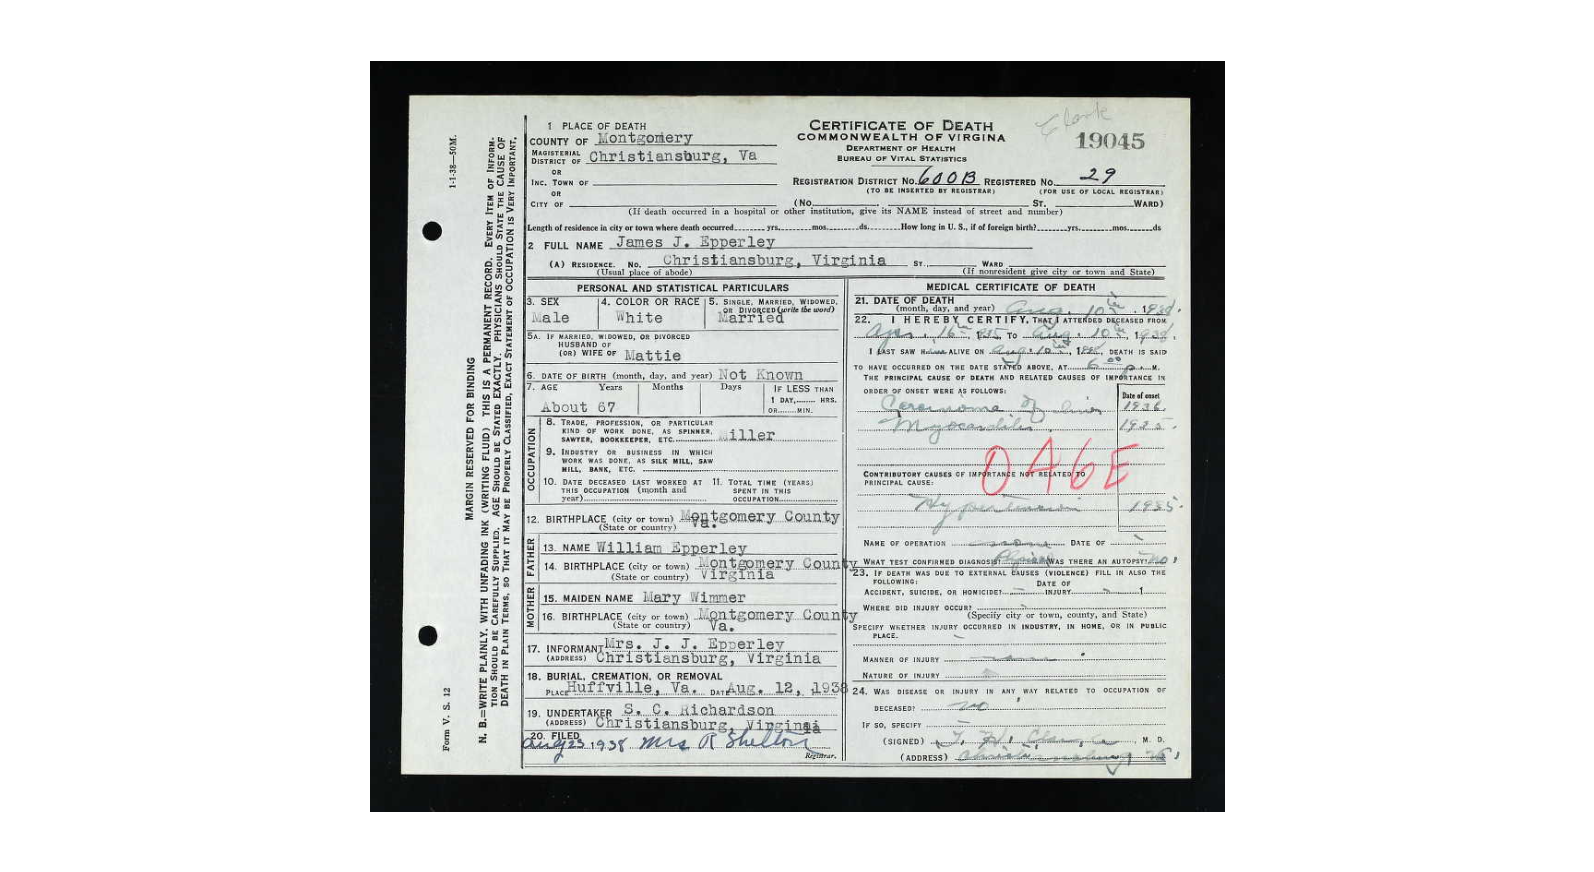 Clark
1 PLACE OF DEATH
COUNTY OF Montgomery
MAGISTERIAL DISTRICT OF Christiansburg, Va
OR
INC. TOWN OF
OR
CITY OF
CERTIFICATE OF DEATH
COMMONWEALTH OF VIRGINIA
DEPARTMENT OF HEALTH
BUREAU OF VITAL STATISTICS
19045
REGISTRATION DISTRICT NO. 600B REGISTERED NO. 29
(TO BE INSERTED BY REGISTRAR) (FOR USE OF LOCAL REGISTRAR)
(No. ST. WARD)
(If death occurred in a hospital or other institution, give its NAME instead of street and number)
Length of residence in city or town where death occurred yrs. mos. ds. How long in U. S., if of foreign birth? yrs. mos. ds
2 FULL NAME James J. Epperley
(A) RESIDENCE. NO. Christiansburg, Virginia ST., WARD
(Usual place of abode) (If nonresident give city or town and State)
PERSONAL AND STATISTICAL PARTICULARS
3. SEX
Male
4. COLOR OR RACE
White
5. SINGLE, MARRIED, WIDOWED,
OR DIVORCED (write the word)
Married
5A. IF MARRIED, WIDOWED, OR DIVORCED
HUSBAND OF
(OR) WIFE OF Mattie
6. DATE OF BIRTH (month, day, and year) Not Known
7. AGE Years Months Days IF LESS THAN
1 DAY, HRS.
OR MIN.
About 67
OCCUPATION
8. TRADE, PROFESSION, OR PARTICULAR
KIND OF WORK DONE, AS SPINNER,
SAWYER, BOOKKEEPER, ETC. Miller
9. INDUSTRY OR BUSINESS IN WHICH
WORK WAS DONE, AS SILK MILL, SAW
MILL, BANK, ETC.
10. DATE DECEASED LAST WORKED AT
THIS OCCUPATION (month and
year)
11. TOTAL TIME (YEARS)
SPENT IN THIS
OCCUPATION
12. BIRTHPLACE (city or town) Montgomery County
(State or country) Va.
FATHER
13. NAME William Epperley
14. BIRTHPLACE (city or town) Montgomery County
(State or country) Virginia
MOTHER
15. MAIDEN NAME Mary Wimmer
16. BIRTHPLACE (city or town) Montgomery County
(State or country) Va.
17. INFORMANT Mrs. J. J. Epperley
(ADDRESS) Christiansburg, Virginia
18. BURIAL, CREMATION, OR REMOVAL
PLACE Huffville, Va. DATE Aug. 12, 1938
19. UNDERTAKER S. C. Richardson
(ADDRESS) Christiansburg, Virginia
20. FILED Aug 23 1938 Mrs R Shelton
Registrar.
MEDICAL CERTIFICATE OF DEATH
21. DATE OF DEATH
(month, day, and year) Aug. 10th, 1938.
22. I HEREBY CERTIFY, THAT I ATTENDED DECEASED FROM
Apr. 16th 1935 TO Aug. 10th, 1938.
I LAST SAW ALIVE ON Aug. 10th, DEATH IS SAID
TO HAVE OCCURRED ON THE DATE STATED ABOVE, AT 6 00 P. M.
THE PRINCIPAL CAUSE OF DEATH AND RELATED CAUSES OF IMPORTANCE IN
ORDER OF ONSET WERE AS FOLLOWS:
Date of onset
Carcinoma of liver 1936.
Myocarditis. 1935.
046E
CONTRIBUTORY CAUSES OF IMPORTANCE NOT RELATED TO
PRINCIPAL CAUSE:
Hypertension 1935.
NAME OF OPERATION none DATE OF
WHAT TEST CONFIRMED DIAGNOSIS? Physical WAS THERE AN AUTOPSY? no
23. IF DEATH WAS DUE TO EXTERNAL CAUSES (VIOLENCE) FILL IN ALSO THE
FOLLOWING:
DATE OF
ACCIDENT, SUICIDE, OR HOMICIDE? INJURY 1
WHERE DID INJURY OCCUR?
(Specify city or town, county, and State)
SPECIFY WHETHER INJURY OCCURRED IN INDUSTRY, IN HOME, OR IN PUBLIC
PLACE.
MANNER OF INJURY none
NATURE OF INJURY
24. WAS DISEASE OR INJURY IN ANY WAY RELATED TO OCCUPATION OF
DECEASED? no
IF SO, SPECIFY
(SIGNED) M. D.
(ADDRESS) Christiansburg Va.
1-1-38—50M.
Form V. S. 12
MARGIN RESERVED FOR BINDING
N. B.—WRITE PLAINLY, WITH UNFADING INK (WRITING FLUID) THIS IS A PERMANENT RECORD. EVERY ITEM OF INFORM-
TION SHOULD BE CAREFULLY SUPPLIED. AGE SHOULD BE STATED EXACTLY. PHYSICIANS SHOULD STATE THE CAUSE OF
DEATH IN PLAIN TERMS, SO THAT IT MAY BE PROPERLY CLASSIFIED. EXACT STATEMENT OF OCCUPATION IS VERY IMPORTANT.